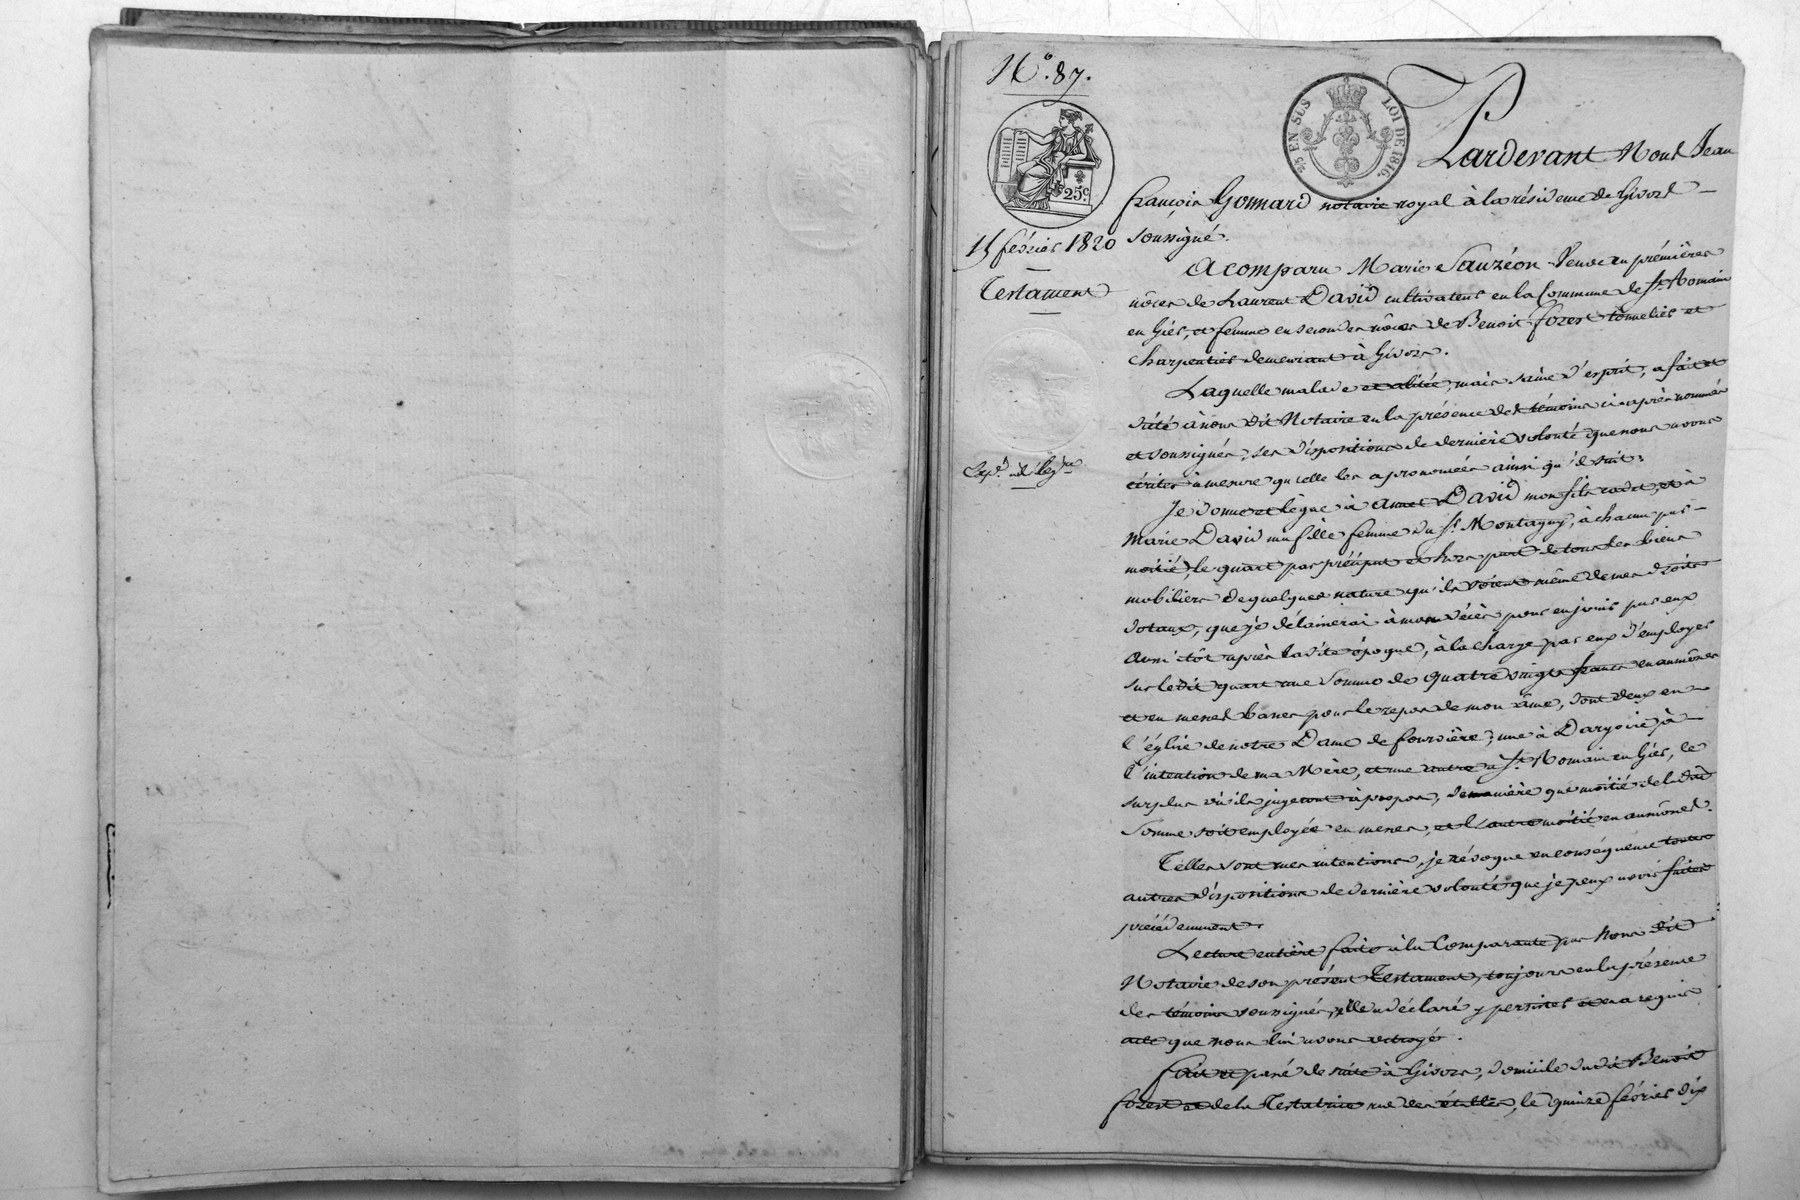 N.o 87.
25 EN SUS LOI DE 1816.
25c.
15 février 1820
Testament
Exp.é et leg.re
Pardevant Nous Jean
françois Gonnard notaire royal à la résidence de Givors —
soussigné.
A comparu Marie Sauzéon Veuve en prémières
nôces de Laurent David cultivateur en la Commune de St. Romain
en Giés, et femme en secondes nôces de Benoit forest tonnelier et
Charpentier demeurant à Givors.
Laquelle malade et alitée, mais saine d'esprit, a fait et
dicté à nous dit Notaire en la présence des témoins ci après nommés
et soussignés, ses dispositions de dernière volonté que nous avons
écrites à mesure qu'elle les a prononcées ainsi qu'il suit:
Je donne et lègue à David mon fils cadet, et à
Marie David ma fille femme du Sr. Montagny, à chacun par —
moitié, le quart par préciput et hors part de tous les biens
mobiliers de quelque nature qu'ils soient même de mes droits
dotaux, que je délaisserai à mon décès pour en jouir par eux
aussitôt après ladite époque, à la charge par eux d'employer
sur ledit quart une somme de quatre vingts francs en aumônes
et en messes basses pour le repos de mon âme, dont deux en —
l'église de notre Dame de fourvière, une à Dargoire à —
l'intention de ma Mère, et une autre a St. Romain en Giés, le
surplus où ils jugeront à propos, de manière que moitié de ladite
somme soit employée en messes, et l'autre moitié en aumônes.
Telles sont mes intentions, je révoque en conséquence toutes
autres dispositions de dernière volonté que je peux avoir faites
précédemment.
Lecture entière faite à la Comparante par Nous dit
Notaire de son présent Testament, toujours en la présence
des témoins soussignés, elle a déclaré y persister et en a requis
acte que nous lui avons octroyé.
fait et passé de suite à Givors, domicile dudit Benoit
forest et de la Testatrice rue des étables, le quinze février dix